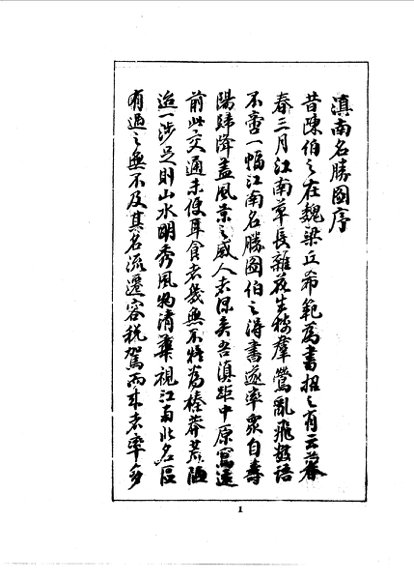 滇南名勝圖序
昔陳伯之在魏梁丘希範為書招之有云暮
春三月江南草長雜花生樹群鶯亂飛數語
不啻一幅江南名勝圖伯之得書遂率眾自壽
陽歸降蓋風景之感人者深矣吾滇距中原寫遠
前此交通未便耳食者幾無不特為榛莽荒陋
迨一涉足則山水明秀風物清華視江南北名區
有過之無不及其名流遷客稅駕而來者率多
1